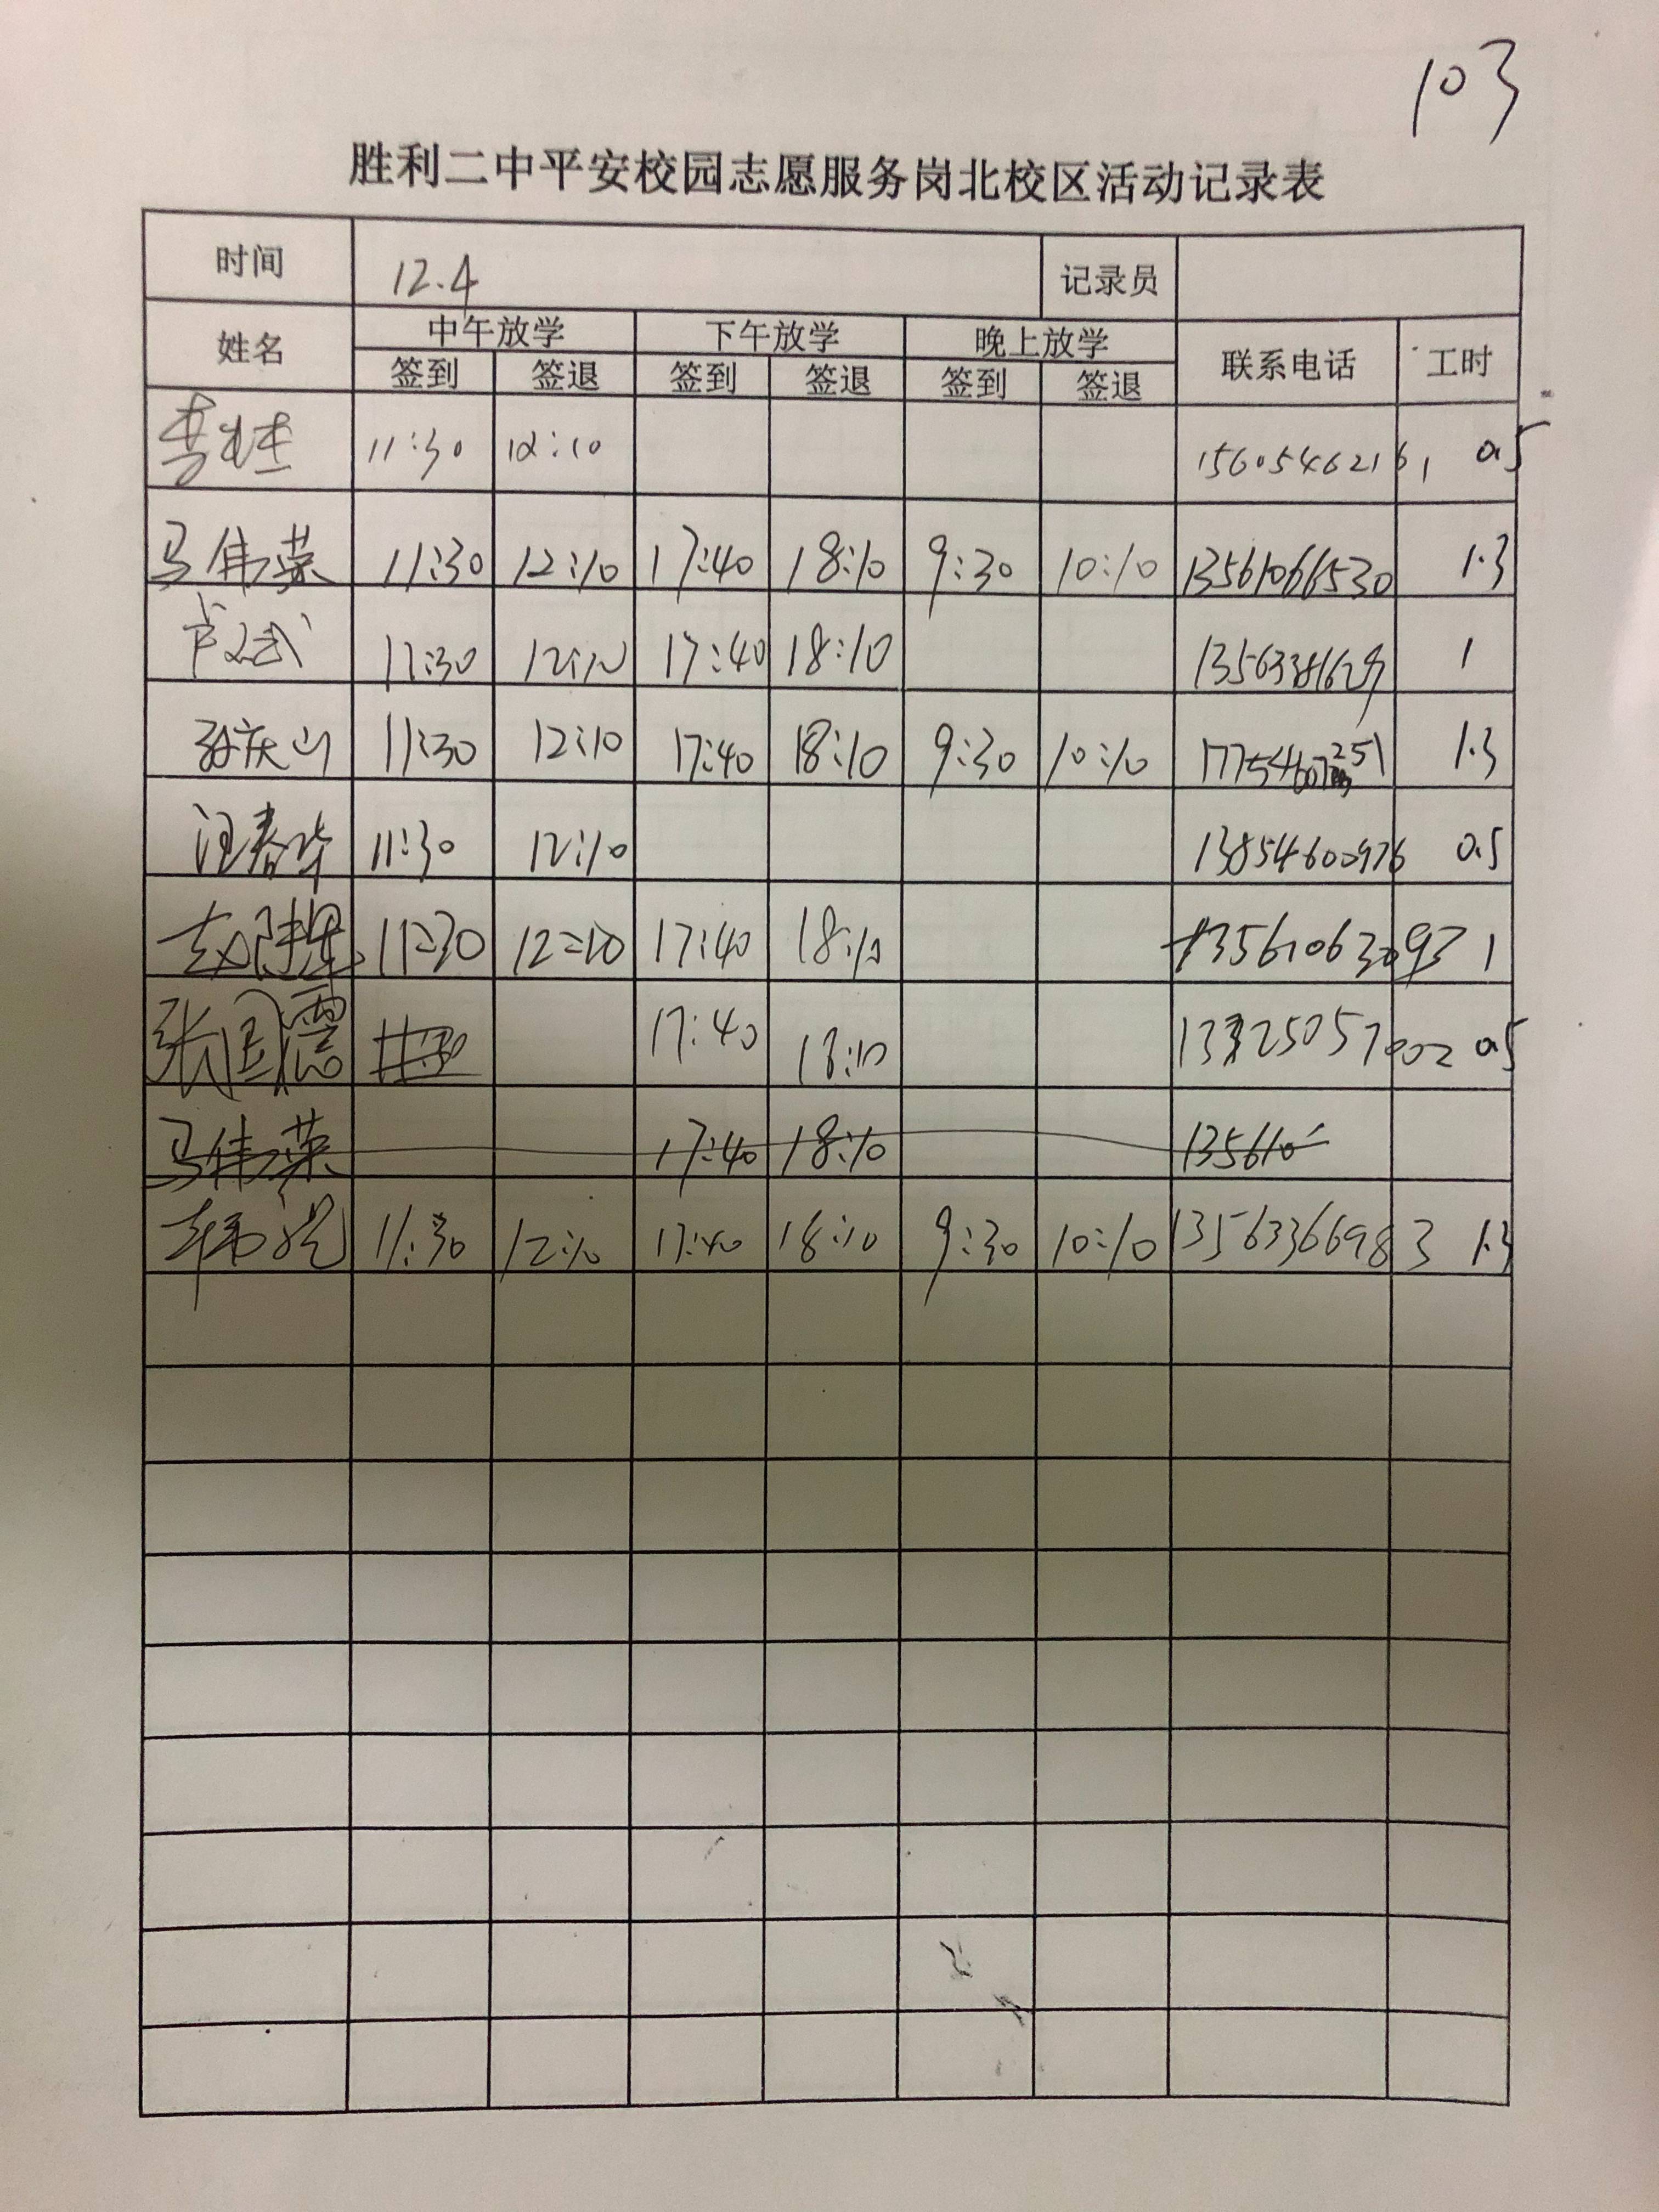 103
胜利二中平安校园志愿服务岗北校区活动记录表
时间 12.4 记录员
姓名 中午放学 下午放学 晚上放学 联系电话 工时
签到 签退 签到 签退 签到 签退
11:30 12:10 15605462161 0.5
马伟荣 11:30 12:10 17:40 18:10 9:30 10:10 13561066530 1.3
卢文武 11:30 12:10 17:40 18:10 1
孙庆山 11:30 12:10 17:40 18:10 9:30 10:10 1.3
汪春华 11:30 12:10 13854600976 0.5
11:30 12:10 17:40 18:10 13561063093 1
张国震 17:40 18:10 0.5
马伟荣 17:40 18:10 135610
韩 11:30 12:10 17:40 18:10 9:30 10:10 13563366983 1.3